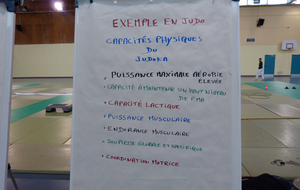 EXEMPLE EN JUDO
CAPACITÉS PHYSIQUES
DU
JUDOKA
. PUISSANCE MAXIMALE AÉROBIE
ELEVÉE
. CAPACITÉ À MAINTENIR UN HAUT NIVEAU
DE PMA
. CAPACITÉ LACTIQUE
. PUISSANCE MUSCULAIRE
. ENDURANCE MUSCULAIRE
. SOUPLESSE GLOBALE ET SPÉCIFIQUE
. COORDINATION MOTRICE